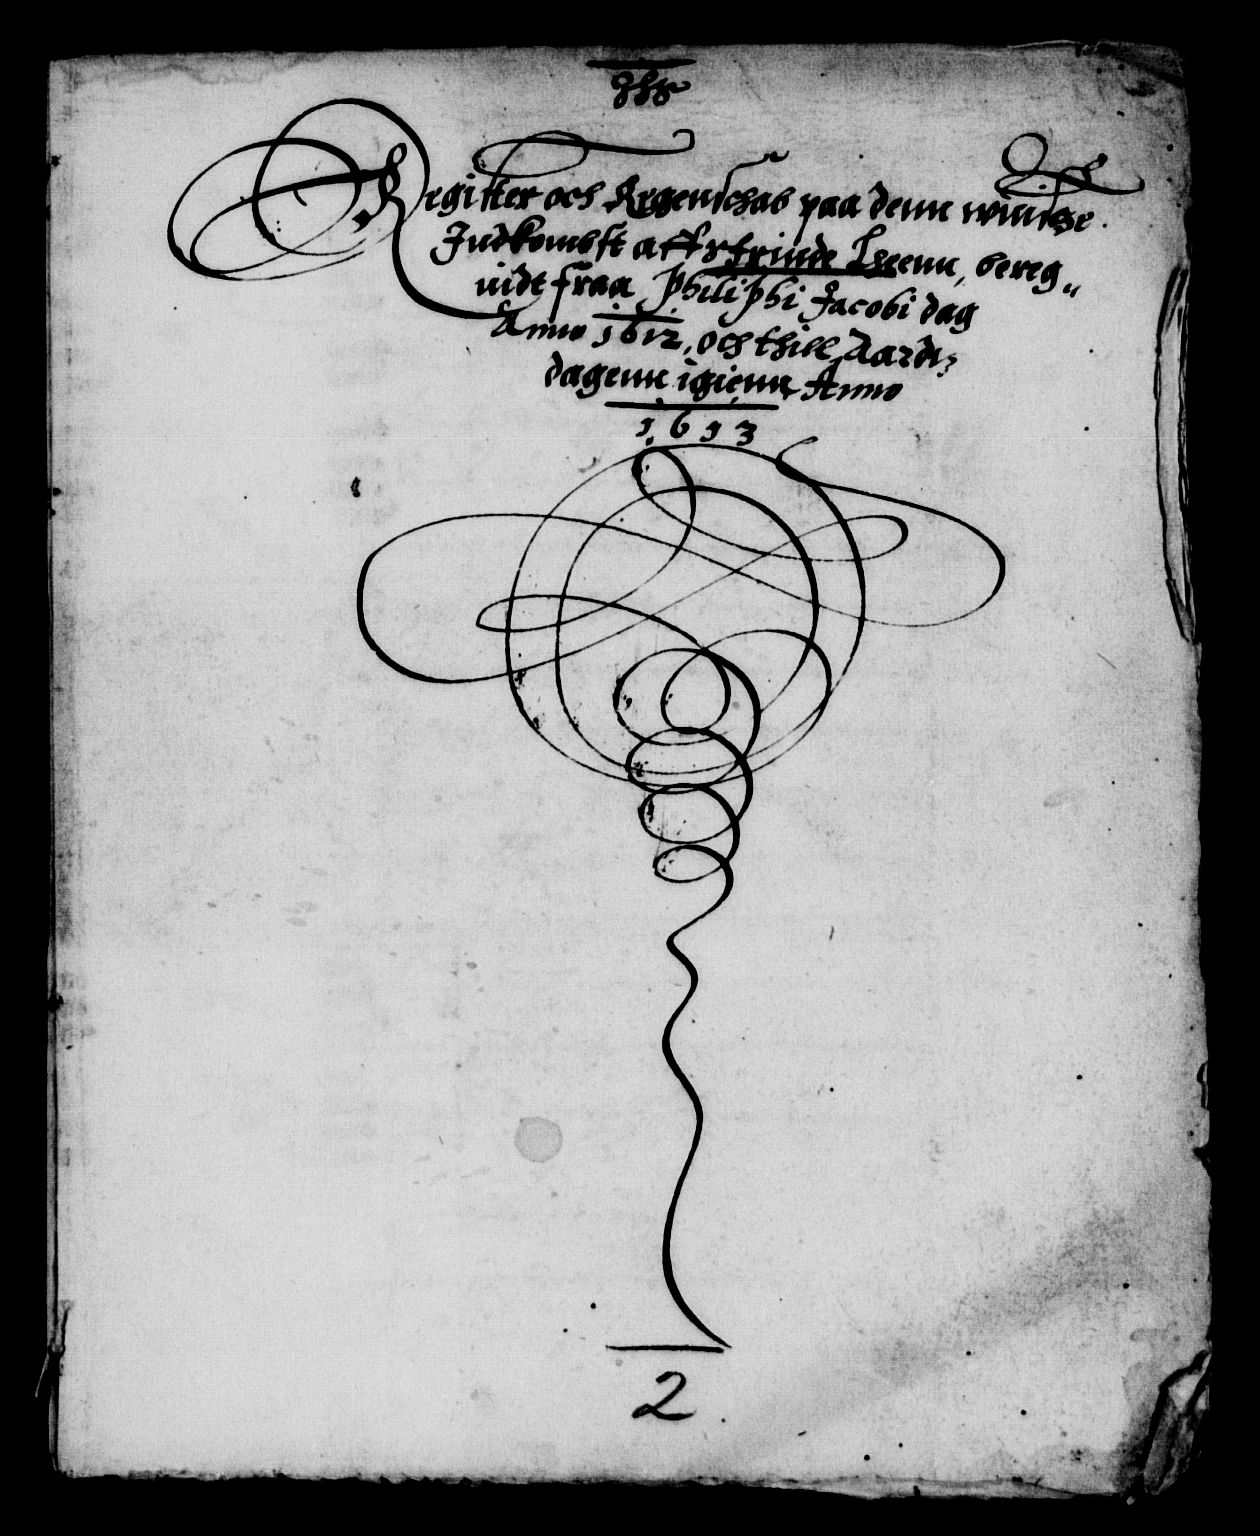 Register och Regenschab paa denn wiintze
Indkombst aff Strinde Leenn, bereg„
nidt fraa Philiphi Jacobi dag
Anno 1612, och thill Aardt
dagenn igienn Anno
1613
2